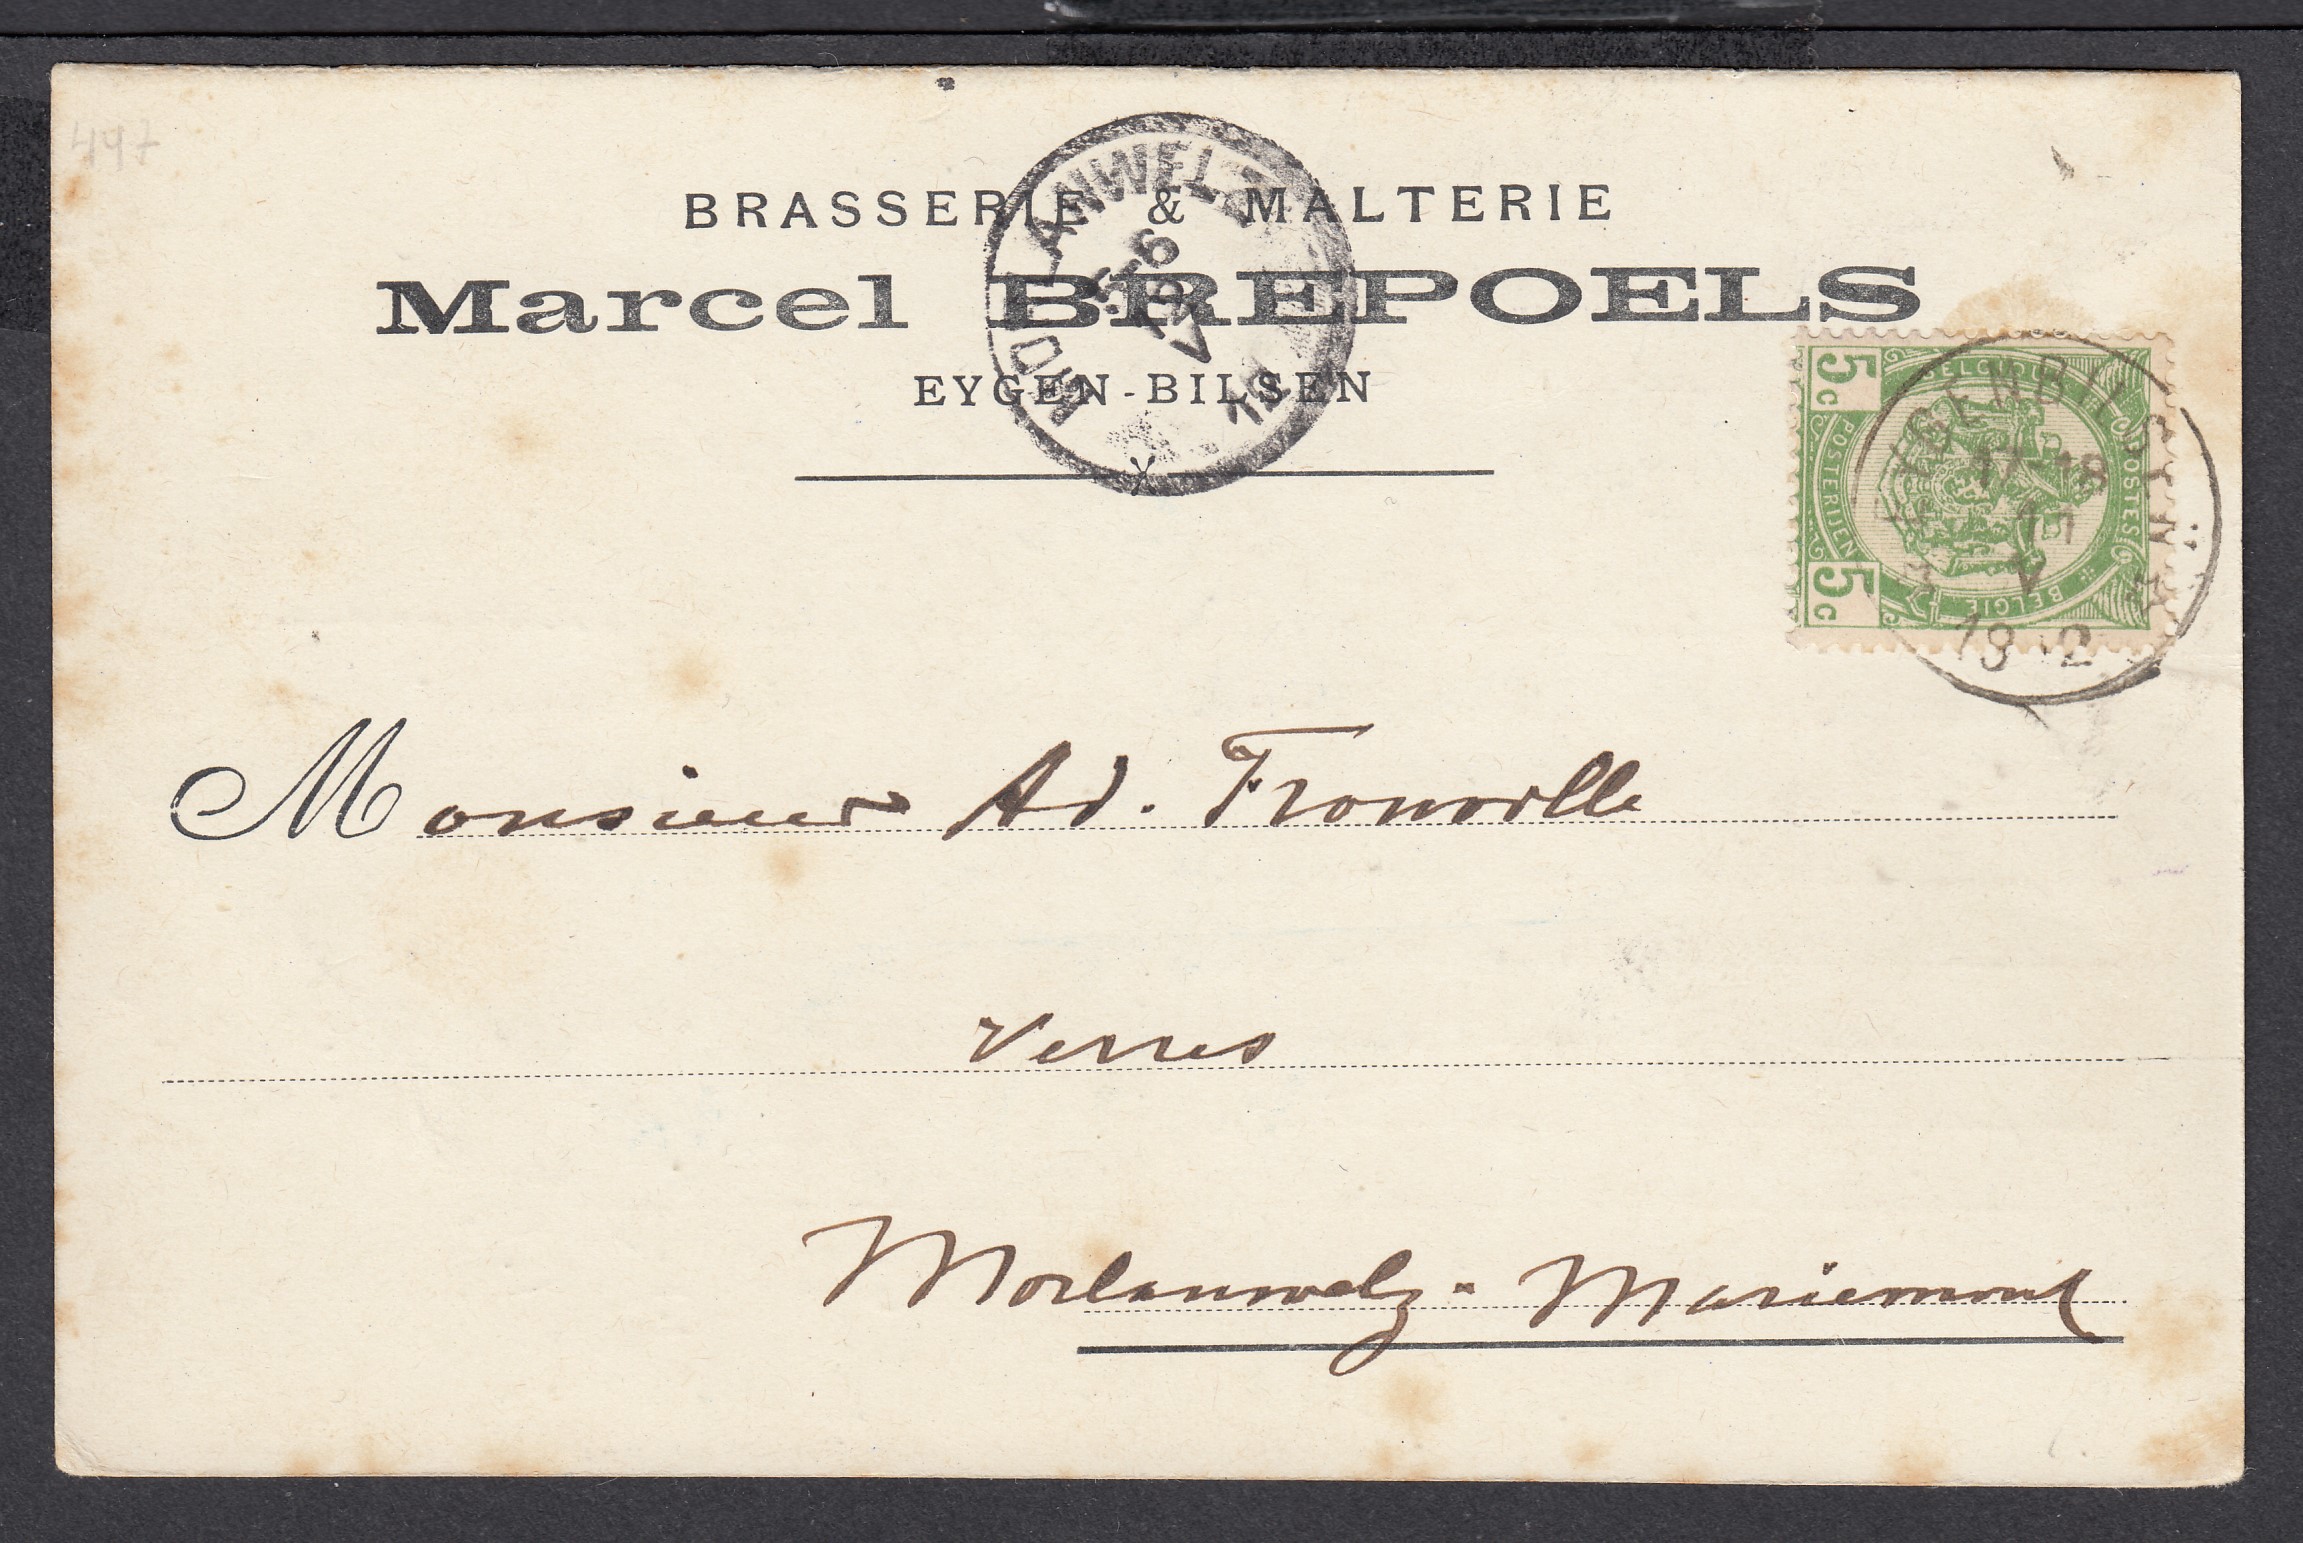 447
BRASSERIE & MALTERIE
Marcel BREPOELS
EYGEN-BILSEN
MORLANWELZ
5-6
V
19
POSTES
BELGIË
POSTERIJEN
5c
5c
EYGENBILSEN
17-18
V
19 2
Monsieur Ad. Fronville
Verres
Morlanwelz - Mariemont